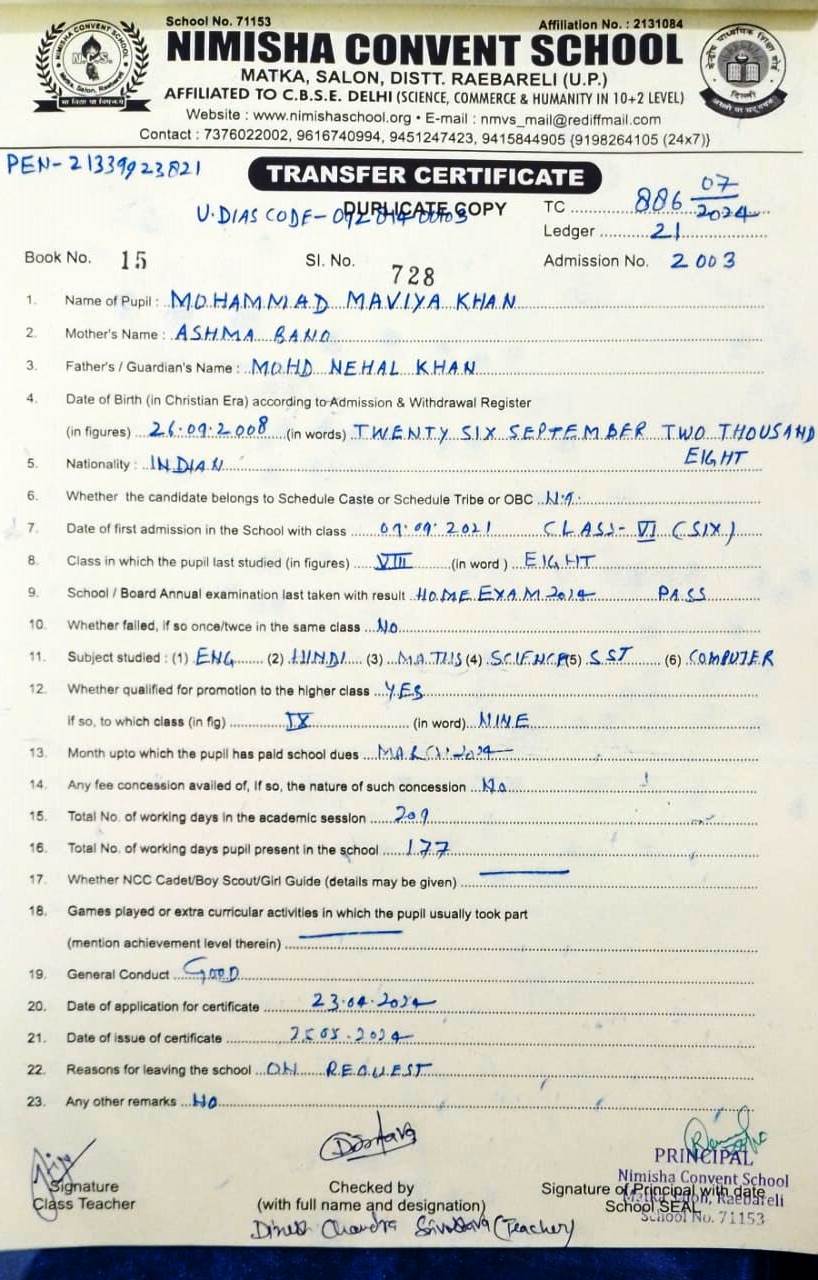 School No. 71153
Affiliation No. : 2131084
NIMISHA CONVENT SCHOOL
MATKA, SALON, DISTT. RAEBARELI (U.P.)
AFFILIATED TO C.B.S.E. DELHI (SCIENCE, COMMERCE & HUMANITY IN 10+2 LEVEL)
Website : www.nimishaschool.org • E-mail : nmvs_mail@rediffmail.com
Contact : 7376022002, 9616740994, 9451247423, 9415844905 {9198264105 (24x7)}
PEN-21339923821
TRANSFER CERTIFICATE
DUPLICATE COPY
U.DIAS CODE-
TC 886 07/2024
Ledger 21
Book No. 15 Sl. No. 728 Admission No. 2003
1. Name of Pupil : MOHAMMAD MAVIYA KHAN
2. Mother's Name : ASHMA BANO
3. Father's / Guardian's Name : MOHD NEHAL KHAN
4. Date of Birth (in Christian Era) according to Admission & Withdrawal Register
(in figures) 26.09.2008 (in words) TWENTY SIX SEPTEMBER TWO THOUSAND
EIGHT
5. Nationality : INDIAN
6. Whether the candidate belongs to Schedule Caste or Schedule Tribe or OBC
7. Date of first admission in the School with class 2021 CLASS- VI (SIX)
8. Class in which the pupil last studied (in figures) VIII (in word ) EIGHT
9. School / Board Annual examination last taken with result HOME EXAM 2024 PASS
10. Whether failed, if so once/twce in the same class No
11. Subject studied : (1) ENG (2) HINDI (3) MATHS (4) SCIENCE (5) SST (6) COMPUTER
12. Whether qualified for promotion to the higher class YES
if so, to which class (in fig) IX (in word) NINE
13. Month upto which the pupil has paid school dues MARCH-2024
14. Any fee concession availed of, If so, the nature of such concession No
15. Total No. of working days in the academic session 209
16. Total No. of working days pupil present in the school 177
17. Whether NCC Cadet/Boy Scout/Girl Guide (details may be given)
18. Games played or extra curricular activities in which the pupil usually took part
(mention achievement level therein)
19. General Conduct GOOD
20. Date of application for certificate 23.04.2024
21. Date of issue of certificate 25.05.2024
22. Reasons for leaving the school ON REQUEST
23. Any other remarks No
Signature
Class Teacher
Checked by
(with full name and designation)
Dinesh Chandra Srivastava (Teacher)
PRINCIPAL
Nimisha Convent School
Matka, Salon, Raebareli
School No. 71153
Signature of Principal with date
School SEAL